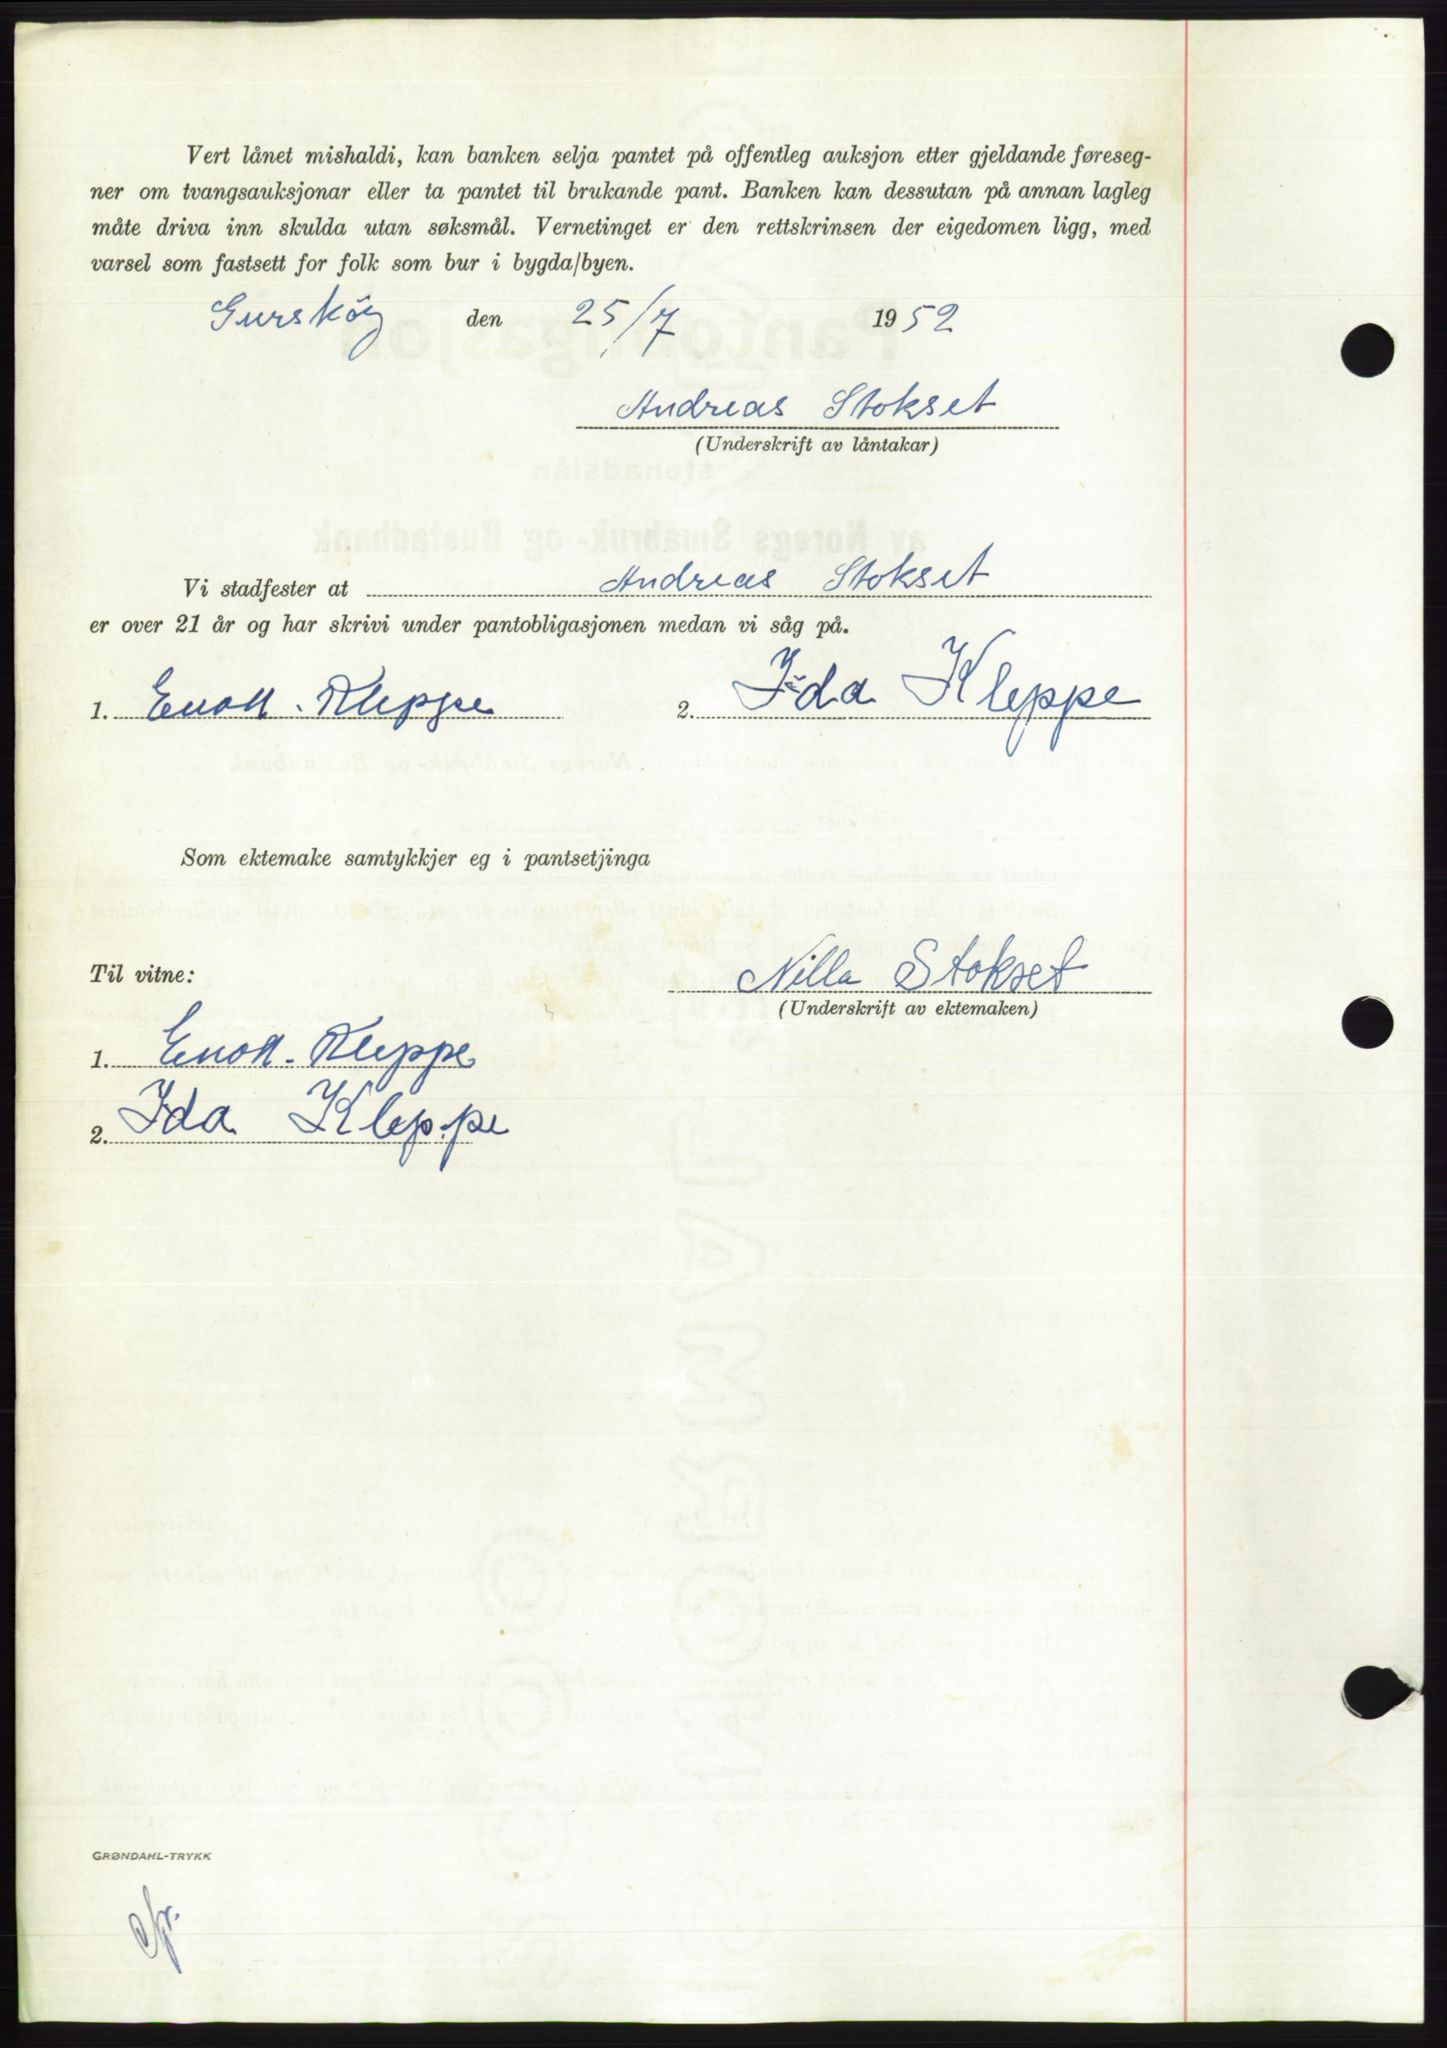 Vert lånet mishaldi, kan banken selja pantet på offentleg auksjon etter gjeldande føreseg-
ner om tvangsauksjonar eller ta pantet til brukande pant. Banken kan dessutan på annan lagleg
måte driva inn skulda utan søksmål. Vernetinget er den rettskrinsen der eigedomen ligg, med
varsel som fastsett for folk som bur i bygda/byen.
Gurskøy den 25/7 1952
Andreas Stokset
(Underskrift av låntakar)
Vi stadfester at Andreas Stokset
er over 21 år og har skrivi under pantobligasjonen medan vi såg på.
1. Kleppe 2. Ida Kleppe
Som ektemake samtykkjer eg i pantsetjinga
Til vitne: Nilla Stokset
(Underskrift av ektemaken)
1. Kleppe
2. Ida Kleppe
GRØNDAHL-TRYKK